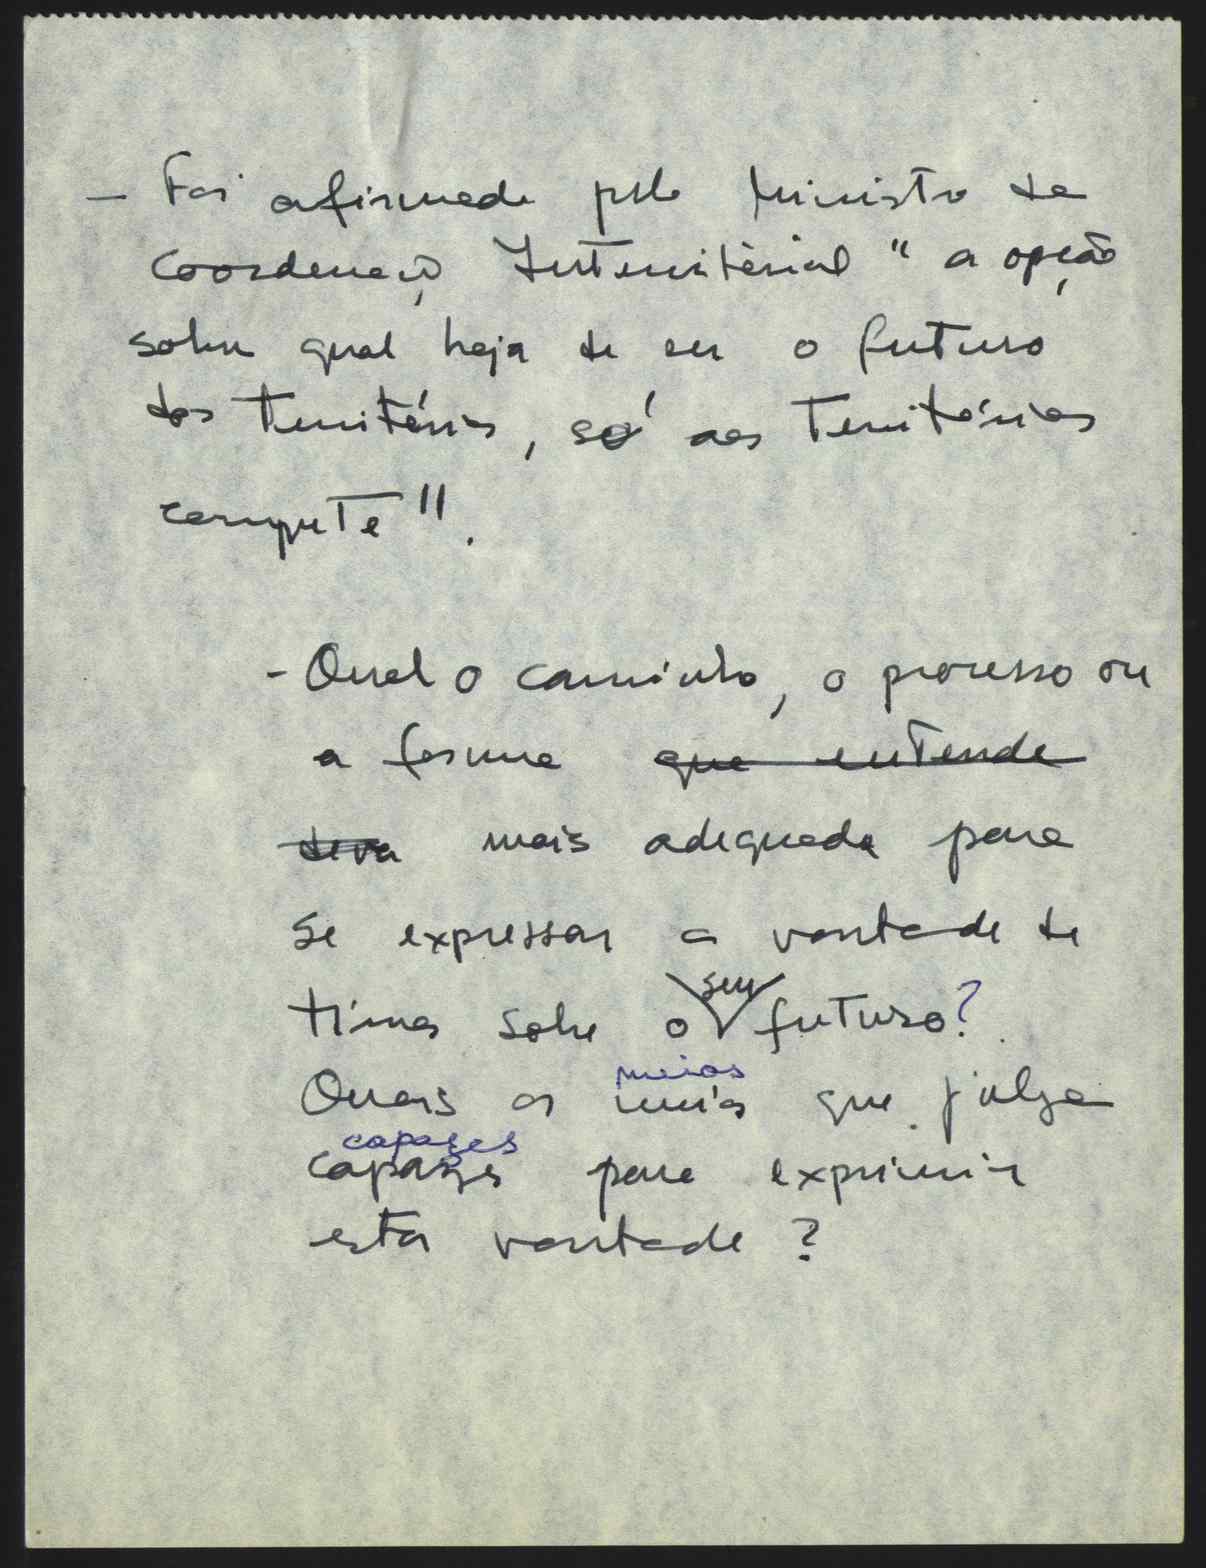 - Foi afirmado pelo Ministro da
Coordenação Interterritorial "a opção
sobre qual haja de ser o futuro
dos Territórios, só aos Territórios
compete".
- Qual o caminho, o processo ou
a forma que entende
deva mais adequada para
se expressar a vontade de
Timor sobre o seu futuro?
meios
Quais os meios que julga
capazes
capazes para exprimir
esta vontade?